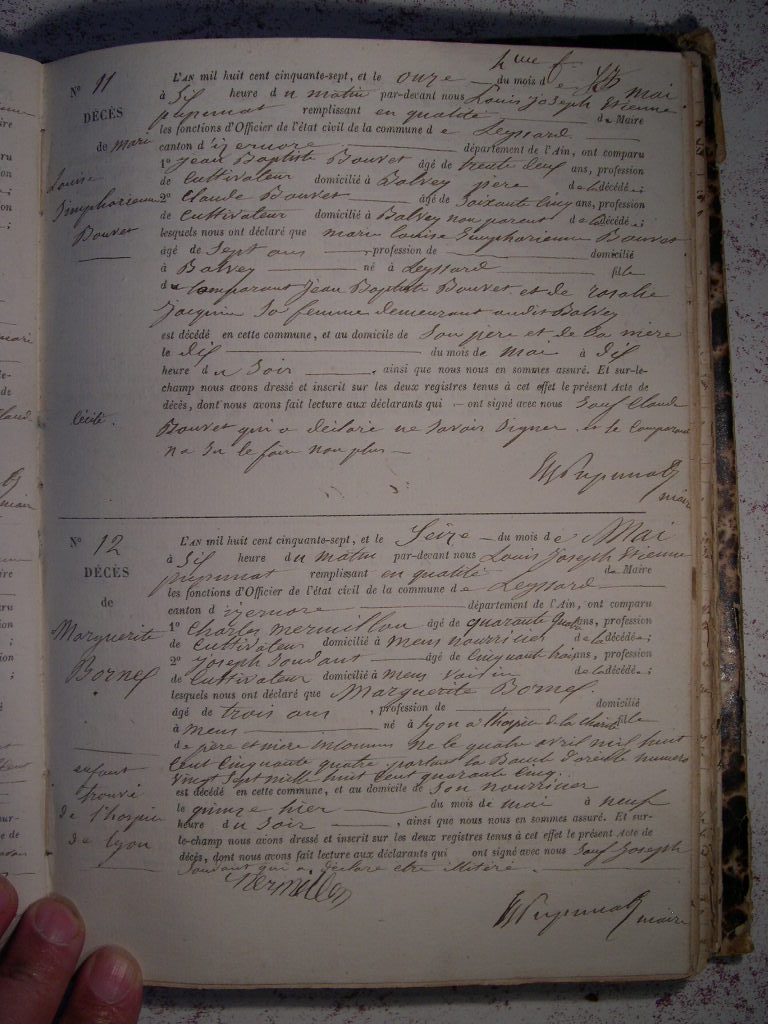 N° 11
DÉCÈS
de Marie
Louise
Simpharienne
Bouvet
L'AN mil huit cent cinquante-sept, et le onze du mois de Mai
à dix heure du matin par-devant nous Louis Joseph Etienne
pupunat remplissant en qualité de Maire
les fonctions d'Officier de l'état civil de la commune de Leyssard
canton d'izernore département de l'Ain, ont comparu
1° Jean Baptiste Bouvet âgé de trente deux ans, profession
de Cultivateur domicilié à Balvey père de la décédée;
2° Claude Bouvet âgé de soixante cinq ans, profession
de Cultivateur domicilié à Balvey non parent de la décédée;
lesquels nous ont déclaré que marie Louise Simpharienne Bouvet
âgé de Sept ans, profession de domicilié
à Balvey né à Leyssard fille
du Comparant Jean Baptiste Bouvet et de rosalie
Jacquin sa femme demeurant audit Balvey
est décédé en cette commune, et au domicile de Son père et de Sa mère
le dix du mois de mai à dix
heure du Soir, ainsi que nous nous en sommes assuré. Et sur-le-
champ nous avons dressé et inscrit sur les deux registres tenus à cet effet le présent Acte de
décès, dont nous avons fait lecture aux déclarants qui ont signé avec nous Sauf Claude
Bouvet qui a déclaré ne Savoir Signer et le Comparant
n'a Su le faire non plus
pupunat
maire
N° 12
DÉCÈS
de
Marguerite
Bornes
enfant
trouvé
de l'hospice
de lyon
L'AN mil huit cent cinquante-sept, et le Seize du mois de Mai
à Six heure du matin par-devant nous Louis Joseph Etienne
pupunat remplissant en qualité de Maire
les fonctions d'Officier de l'état civil de la commune de Leyssard
canton d'izernore département de l'Ain, ont comparu
1° Charles mermillon âgé de quarante quatre ans, profession
de Cultivateur domicilié à mens nourricier de la décédée;
2° Joseph Soudant âgé de Cinquante trois ans, profession
de Cultivateur domicilié à mens voisin de la décédée;
lesquels nous ont déclaré que Marguerite Bornes
âgé de trois ans, profession de domicilié
à mens né à lyon à l'hospice de la charité fille
de père et mère inconnus né le quatre avril mil huit
Cent Cinquante quatre portant la Boucle d'oreille numero
Vingt Sept mille huit Cent quarante Cinq
est décédé en cette commune, et au domicile de Son nourricier
le quinze hier du mois de mai à neuf
heure du Soir, ainsi que nous nous en sommes assuré. Et sur-
le-champ nous avons dressé et inscrit sur les deux registres tenus à cet effet le présent Acte de
décès, dont nous avons fait lecture aux déclarants qui ont signé avec nous Sauf Joseph
Soudant qui a déclaré être illitéré
Mermillon
pupunat
maire